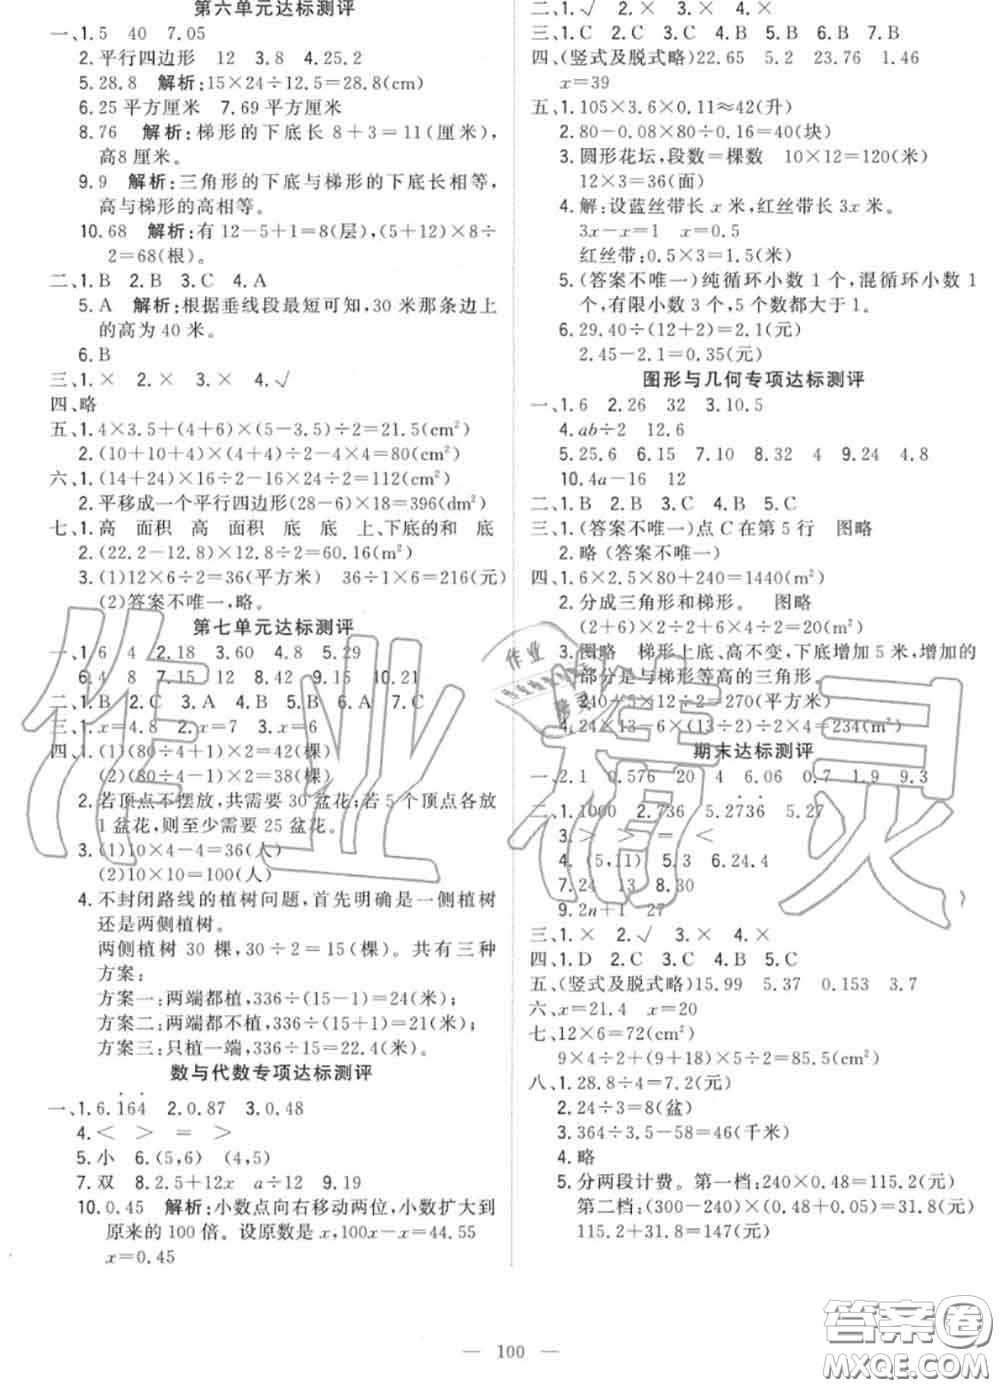 第六单元达标测评
一、1.5 40 7.05
2.平行四边形 12 3.8 4.25.2
5.28.8 解析:15×24÷12.5=28.8(cm)
6.25平方厘米 7.69平方厘米
8.76 解析:梯形的下底长8+3=11(厘米),
高8厘米。
9.9 解析:三角形的下底与梯形的下底长相等,
高与梯形的高相等。
10.68 解析:有12-5+1=8(层),(5+12)×8÷
2=68(根)。
二、1.B 2.B 3.C 4.A
5.A 解析:根据垂线段最短可知,30米那条边上
的高为40米。
6.B
三、1.× 2.× 3.× 4.√
四、略
五、1.4×3.5+(4+6)×(5-3.5)÷2=21.5(cm²)
2.(10+10+4)×(4+4)÷2-4×4=80(cm²)
六、1.(14+24)×16÷2-16×24÷2=112(cm²)
2.平移成一个平行四边形(28-6)×18=396(dm²)
七、1.高 面积 高 面积 底 底 上、下底的和 底
2.(22.2-13.8)×12.8÷2=60.16(m²)
3.(1)12×6÷2=36(平方米) 36÷1×6=216(元)
(2)答案不唯一,略。
第七单元达标测评
一、1.6 4 2.18 3.60 4.8 5.29
6.4 8 7.15 12 8.42 9.15 10.21
二、1.B 2.C 3.A 4.B 5.C 6.A 7.C
三、1.x=4.8 2.x=7 3.x=6
四、1.(1)(80÷4+1)×2=42(棵)
(2)(80÷4-1)×2=38(棵)
2.若顶点不摆放,共需要30盆花;若5个顶点各放
1盆花,则至少需要25盆花。
3.(1)10×4-4=36(人)
(2)10×10=100(人)
4.不封闭路线的植树问题,首先明确是一侧植树
还是两侧植树。
两侧植树30棵,30÷2=15(棵)。共有三种
方案:
方案一:两端都植,336÷(15-1)=24(米);
方案二:两端都不植,336÷(15+1)=21(米);
方案三:只植一端,336÷15=22.4(米)。
数与代数专项达标测评
一、1.6.1̇64̇ 2.0.87 3.0.48
4.< > = >
5.小 6.(5,6) (4,5)
7.双 8.2.5+12x a÷12 9.19
10.0.45 解析:小数点向右移动两位,小数扩大到
原来的100倍。设原数是x,100x-x=44.55
x=0.45
二、1.√ 2.× 3.× 4.× 5.×
三、1.C 2.C 3.C 4.B 5.C 6.B 7.B
四、(竖式及脱式略)22.65 2.5 7.23 1.46
x=39
五、1.105×3.6×0.11≈42(升)
2.80-0.08×80÷0.16=40(块)
3.圆形花坛,段数=棵数 10×12=120(米)
12×3=36(面)
4.解:设蓝丝带长x米,红丝带长3x米。
3x-x=1 x=0.5
红丝带:0.5×3=1.5(米)
5.(答案不唯一)纯循环小数1个,混循环小数1
个,有限小数3个,5个数都大于1。
6.29.40÷(12+2)=2.1(元)
2.45-2.1=0.35(元)
图形与几何专项达标测评
一、1.6 2.26 32 3.10.5
4.ab÷2 12.6
5.25.6 6.15 7.10 8.32 4 9.24 4.8
10.4a-16 12
二、1.B 2.B 3.C 4.B 5.C
三、1.(答案不唯一)点C在第5行 图略
2.略(答案不唯一)
四、1.6×2.5×80+240=1440(m²)
2.分成三角形和梯形。 图略
(2+6)×2÷2+6×4÷2=20(m²)
3.图略 梯形上底、高不变,下底增加5米,增加的
部分是与梯形等高的三角形,
240÷5×12÷2=270(平方米)
4.24×13-6×(13÷2)÷2×4=234(m²)
期末达标测评
一、2.1 0.576 20 4 6.06 0.7 1.9 9.3
二、1.1000 2.736 5.2736 5.27
3.> > = <
4.(5,11) 5.3 6.24.4
7.24 13 8.30
9.2n+1 27
三、1.× 2.√ 3.× 4.×
四、1.D 2.C 3.C 4.B 5.C
五、(竖式及脱式略)15.99 5.37 0.153 3.7
六、x=21.4 x=20
七、12×6=72(cm²)
9×4÷2+(9+18)×5÷2=85.5(cm²)
八、1.28.8÷4=7.2(元)
2.24÷3=8(盆)
3.364÷3.5-58=46(千米)
4.略
5.分两段计费。第一档:240×0.48=115.2(元)
第二档:(300-240)×(0.48+0.05)=31.8(元)
115.2+31.8=147(元)
100
作业精灵
答案圈
MXQE.COM